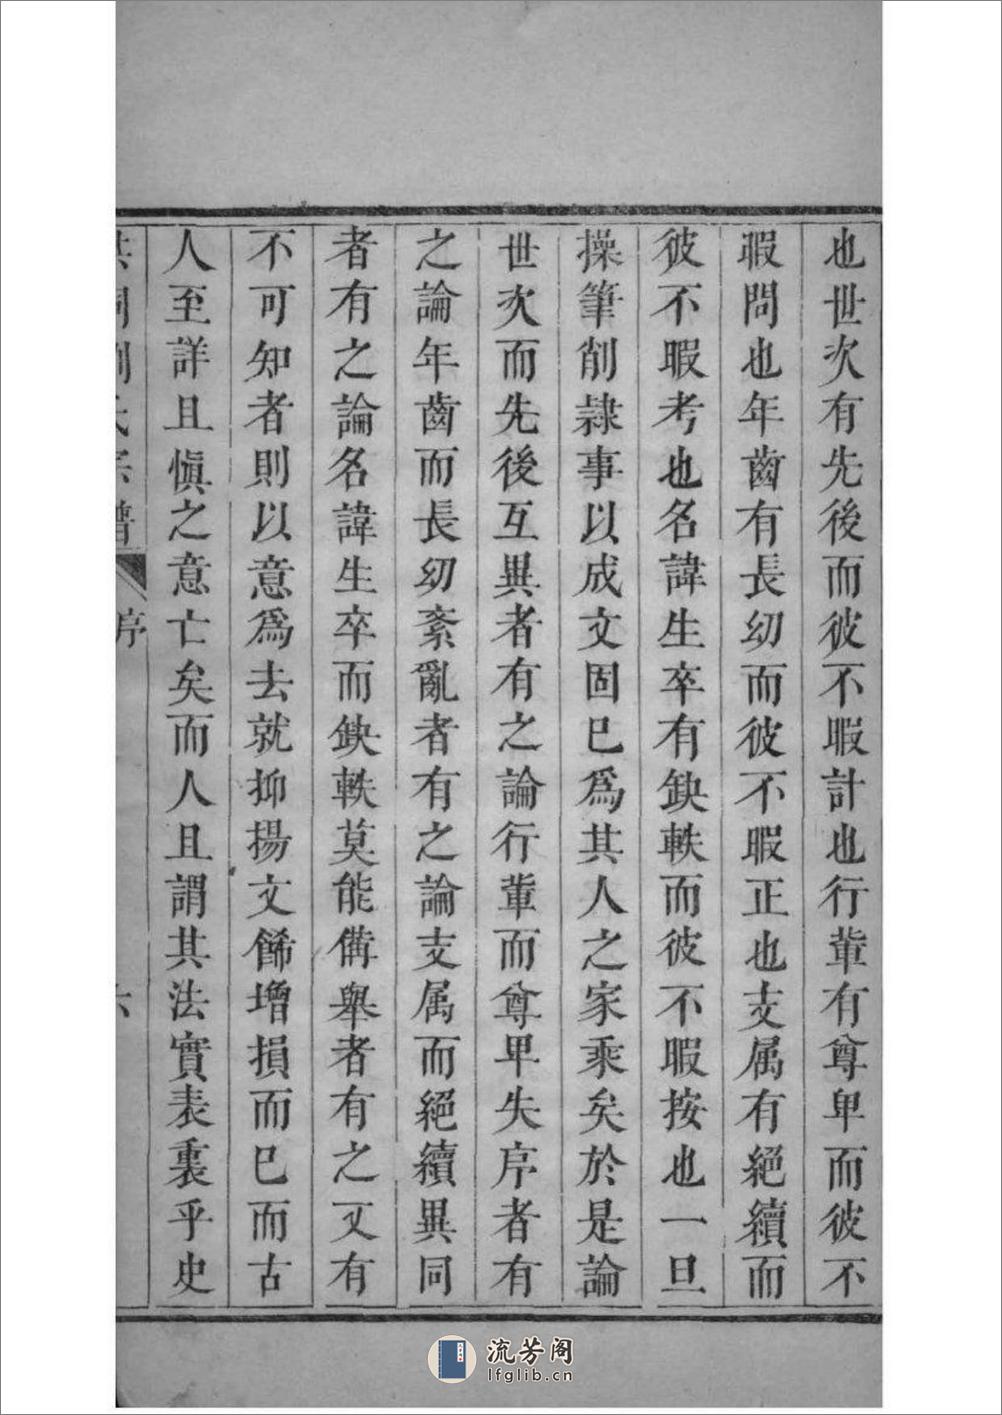 也世次有先後而彼不暇計也行輩有尊卑而彼不
暇問也年齒有長幼而彼不暇正也支属有絕續而
彼不暇考也名諱生卒有缺軼而彼不暇按也一旦
操筆削隷事以成文固已為其人之家乘矣於是論
世次而先後互異者有之論行輩而尊卑失序者有
之論年齒而長幼紊亂者有之論支属而絕續異同
者有之論名諱生卒而缺軼莫能備舉者有之又有
不可知者則以意為去就抑揚文餙增損而已而古
人至詳且慎之意亡矣而人且謂其法實表裏乎史
氏宗譜
序
六
流芳阁
lfglib.cn